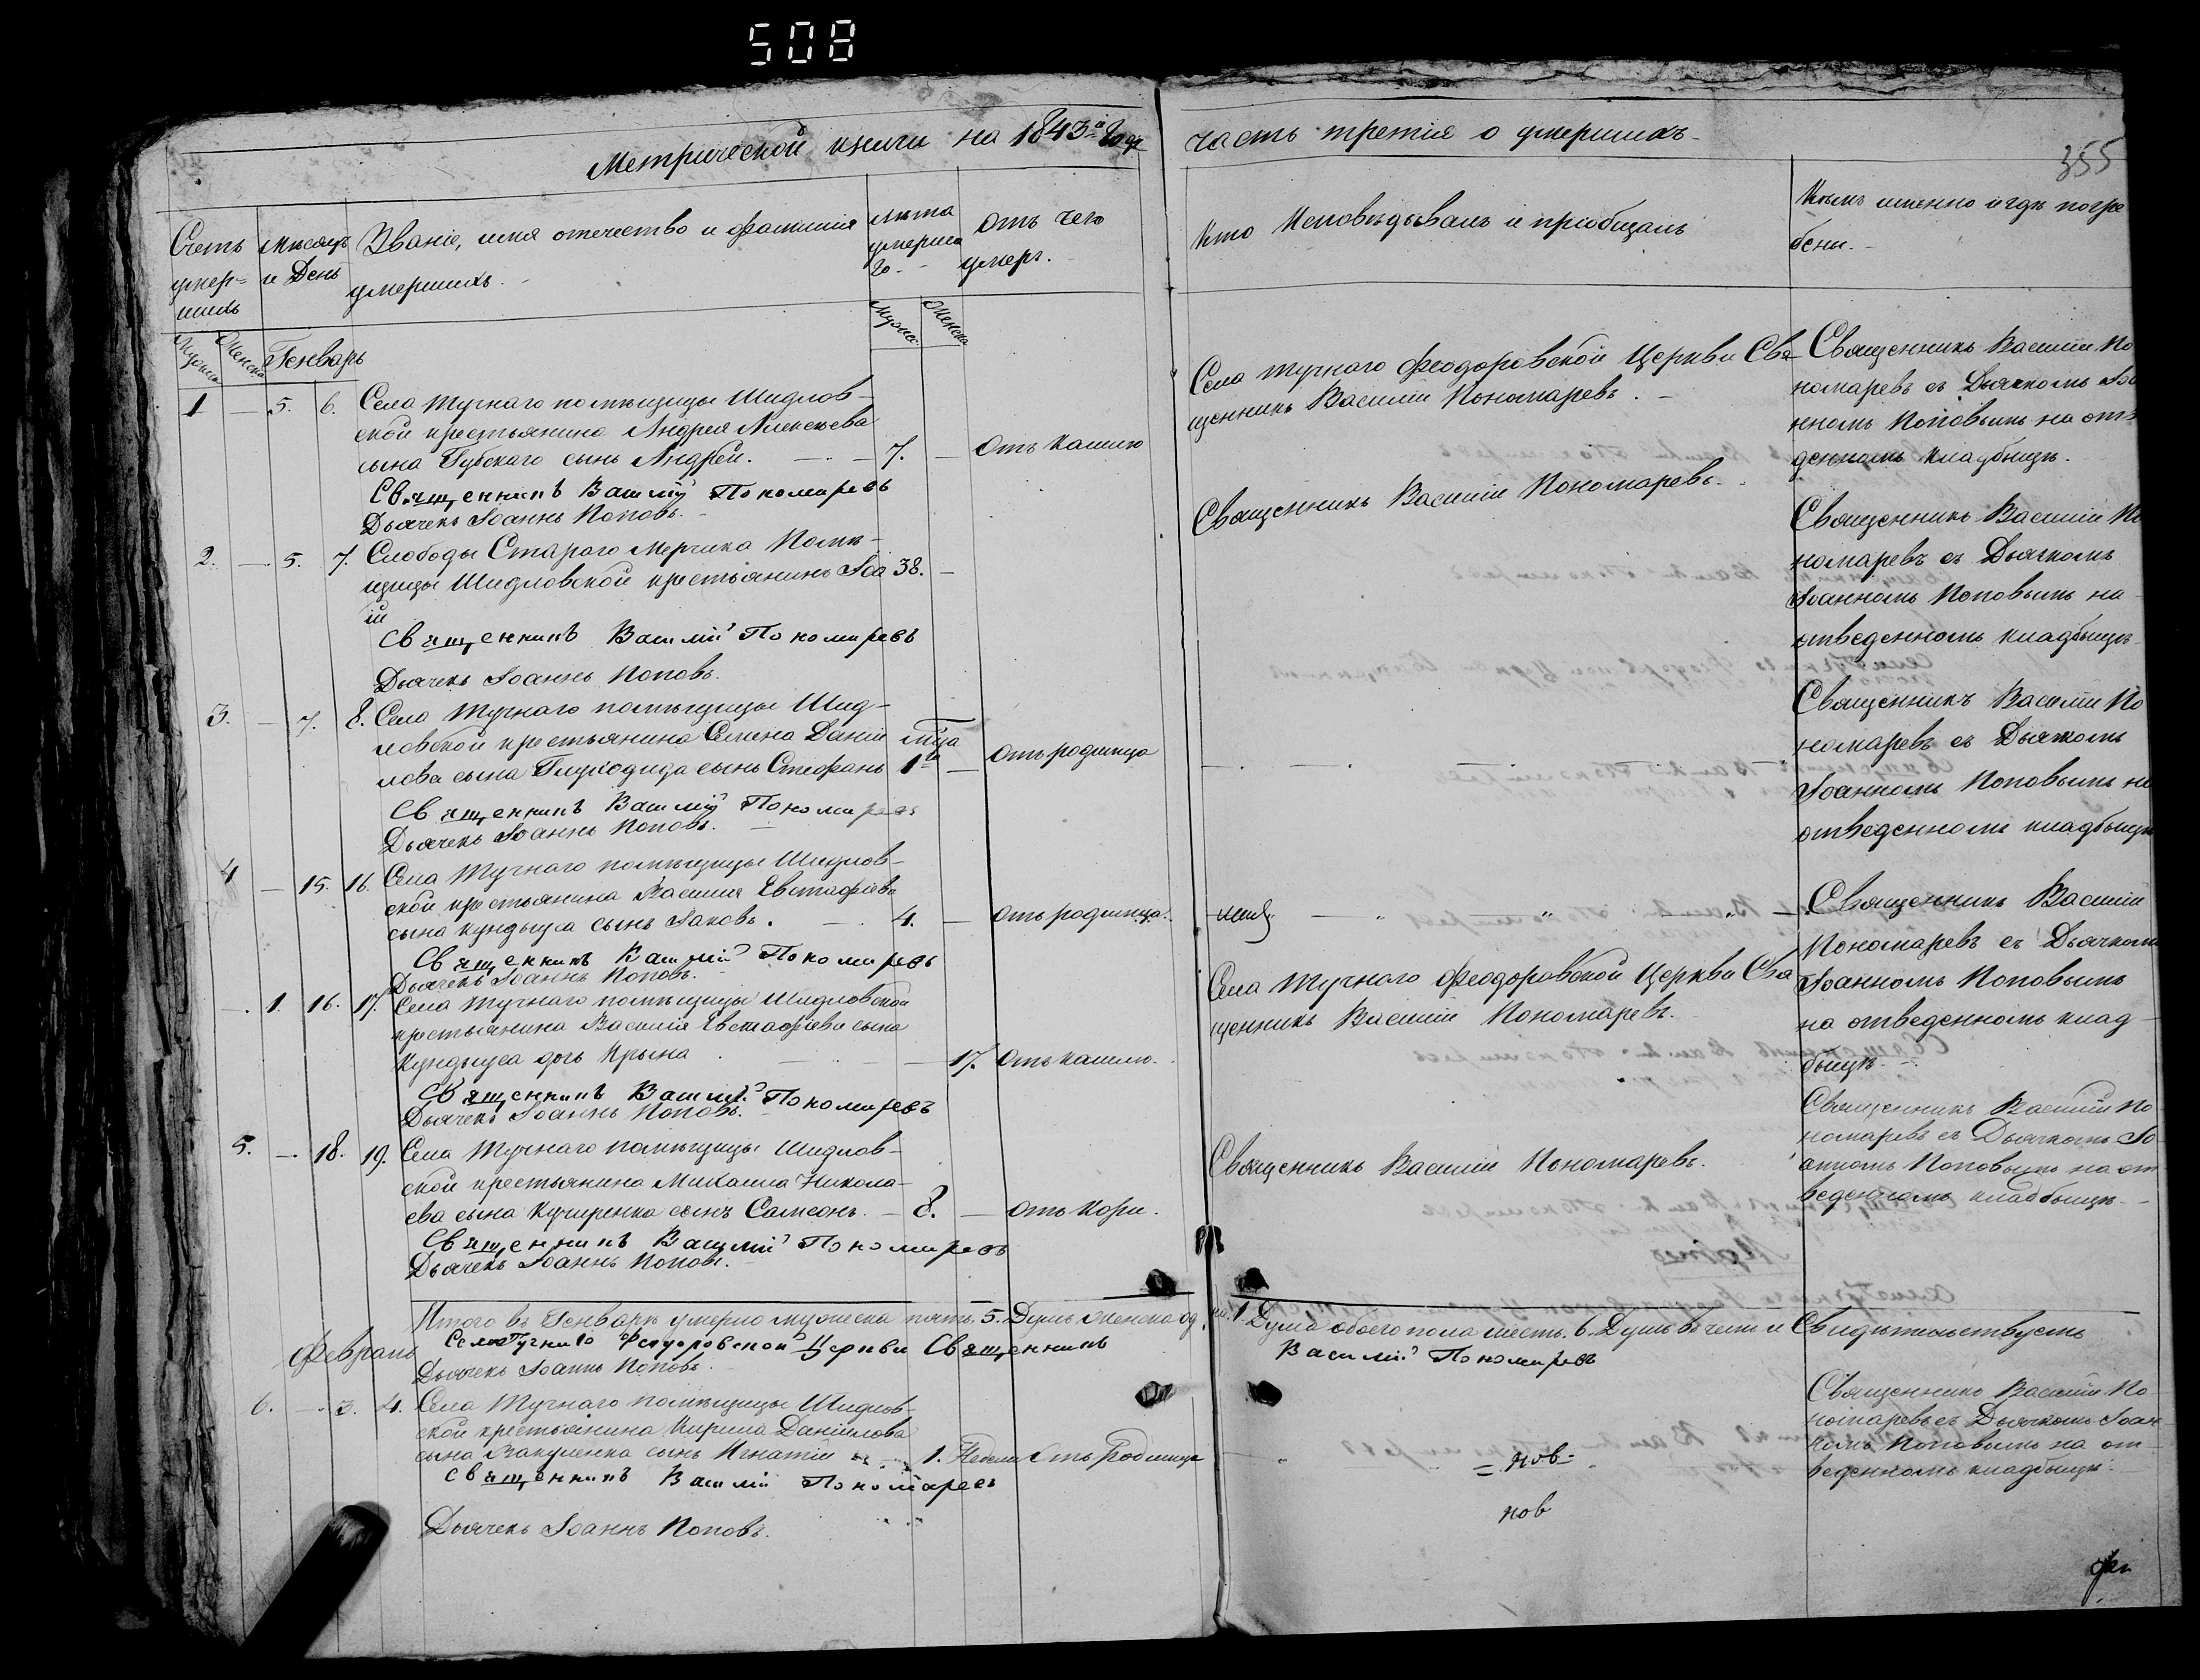 508
Метрической книги на 1843й Годъ
часть третія о умершихъ
355
Счетъ умер=шихъ
Мѣсяцъ и День
Званіе, имя отечество и фамилія
умершихъ.
лѣта умерша го.
отъ чего умеръ.
Кто Исповѣдывалъ и пріобщалъ
Кѣмъ именно и гдѣ погре
бены.
Мужеска
Женска
Генварь
Мужес.
Женска
1 — 5. 6. Села Тучнаго помѣщицы Шидлов-
ской крестьянина Андрея Алексѣева
сына Губскаго сынъ Андрей. — 7. — отъ кашлю
Священникъ Василій Пономаревъ
Дьячекъ Іоаннъ Поповъ.
Села Тучнаго Феодоровской Церкви Свя
щенникъ Василій Пономаревъ.
Священникъ Василій По
номаревъ съ Дьячкомъ Іоа
нномъ Поповымъ на отве
денномъ кладбищѣ.
2. — 5. 7. Слободы Стараго Мерчика Помѣ-
щицы Шидловской крестьянинъ 38. —
Священникъ Василій Пономаревъ
Дьячекъ Іоаннъ Поповъ.
Священникъ Василій Пономаревъ.
Священникъ Василій По
номаревъ съ Дьячкомъ
Іоанномъ Поповымъ на
отведенномъ кладбищѣ
3. — 7. 8. Села Тучнаго помѣщицы Шид-
ловской крестьянина Семена Даніи мца
лова сына Глуходида сынъ Стефанъ 1го — отъ родимца
Священникъ Василій Пономаревъ
Дьячекъ Іоаннъ Поповъ.
Священникъ Василій По
номаревъ съ Дьячкомъ
Іоанномъ Поповымъ на
отведенномъ кладбищѣ
4 — 15. 16. Села Тучнаго помѣщицы Шидлов-
ской крестьянина Василія Евстафіева
сына Кундыуса сынъ Іаковъ. — 4. — отъ родимца.
Священникъ Василій Пономаревъ
Дьячекъ Іоаннъ Поповъ.
Священникъ Василій
Пономаревъ съ Дьячкомъ
Іоанномъ Поповымъ
на отведенномъ клад
бищѣ.
— 1. 16. 17. Села Тучнаго помѣщицы Шидловской
крестьянина Василія Евстафіева сына
Кундыуса дочь Ирына — 17. отъ кашлю.
Священникъ Василій Пономаревъ
Дьячекъ Іоаннъ Поповъ.
Села Тучнаго Феодоровской Церкви Свя
щенникъ Василій Пономаревъ.
Священникъ Василій По
номаревъ съ Дьячкомъ Іо
анномъ Поповымъ на от
веденномъ кладбищѣ
5. — 18. 19. Села Тучнаго помѣщицы Шидлов-
ской крестьянина Михаила Никола-
ева сына Кучеренка сынъ Самсонъ. — 8. — отъ Кори.
Священникъ Василій Пономаревъ
Дьячекъ Іоаннъ Поповъ.
Священникъ Василій Пономаревъ.
Итого въ Генварѣ умерло мужеска пять 5. Душъ женска од на 1. Душа обоего пола шесть. 6. Душъ въ чемъ и Свидѣтельствуемъ
Села Тучнаго Феодоровской Церкви Священникъ Василій Пономаревъ
Дьячекъ Іоаннъ Поповъ.
Февраль
6. — 3. 4. Села Тучнаго помѣщицы Шидлов-
ской крестьянина Кирила Даніилова
сына Закуленка сынъ Игнатій 1. Недели отъ родимца
Священникъ Василій Пономаревъ
Дьячекъ Іоаннъ Поповъ.
Священникъ Василій По
номаревъ съ Дьячкомъ Іоан
номъ Поповымъ на от-
веденномъ кладбищѣ.
нов
нов